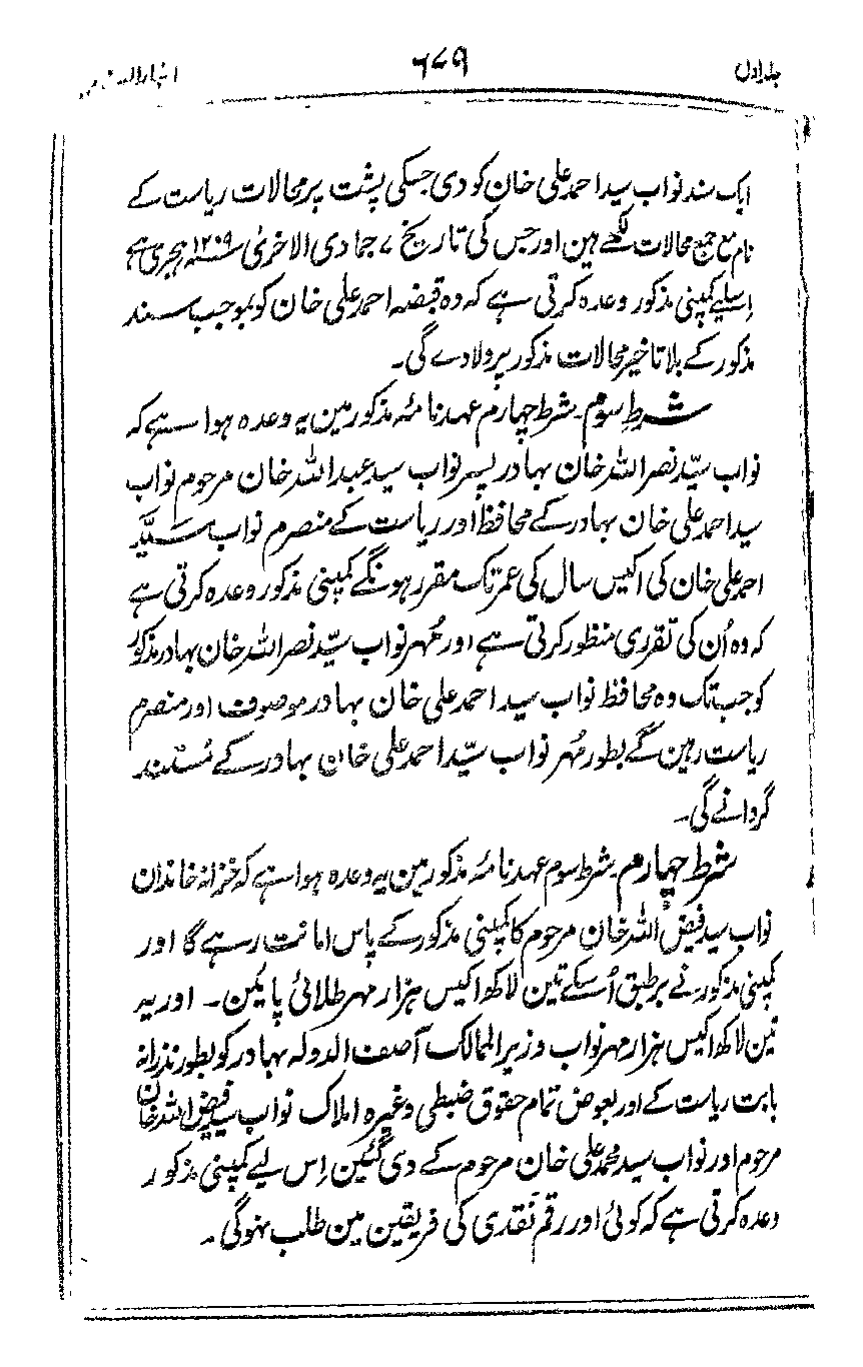 جلد اول ۶۷۹
ایک سند نواب سید احمد علی خان کو دی جسکی پشت پر محالات ریاست کے
نام مع جمع محالات لکھے ہین اور جس کی تاریخ ۷ جمادی الاخریٰ سنہ ۱۲۰۹ ہجری ہے
اِسلیے کمپنی مذکور وعدہ کرتی ہے کہ وہ قبضہ احمد علی خان کو بموجب سند
مذکور کے بلا تاخیر محالات مذکور پر دلا دے گی۔
شرط سوم۔ شرط چہارم عہدنامۂ مذکور مین یہ وعدہ ہوا ہے کہ
نواب سیّد نصر اللہ خان بہادر پسر نواب سید عبد اللہ خان مرحوم نواب
سید احمد علی خان بہادر کے محافظ اور ریاست کے منصرم نواب سَیِّد
احمد علی خان کی اکیس سال کی عمر تک مقرر ہونگے کمپنی مذکور وعدہ کرتی ہے
کہ وہ اُن کی تقرری منظور کرتی ہے اور مُہر نواب سیّد نصر اللہ خان بہادر مذکور
کو جب تک وہ محافظ نواب سید احمد علی خان بہادر موصوف اور منصرم
ریاست رہین گے بطور مُہر نواب سیّد احمد علی خان بہادر کے مُستند
گردانے گی۔
شرط چہارم۔ شرط سوم عہدنامۂ مذکور مین یہ وعدہ ہوا ہے کہ خزانہ خاندان
نواب سید فیض اللہ خان مرحوم کا کمپنی مذکور کے پاس امانت رہے گا اور
کمپنی مذکور نے برطبق اُسکے تین لاکھ اکیس ہزار مہر طلائی پائین۔ اور یہ
تین لاکھ اکیس ہزار مہر نواب وزیر الممالک آصف الدولہ بہادر کو بطور نذرانہ
بابت ریاست کے اور بعوض تمام حقوق ضبطی وغیرہ املاک نواب سید فیض اللہ خان
مرحوم اور نواب سید محمد علی خان مرحوم کے دی گئین اِس لیے کمپنی مذکور
وعدہ کرتی ہے کہ کوئی اور رقم نقدی کی فریقین مین طلب نہوگی۔